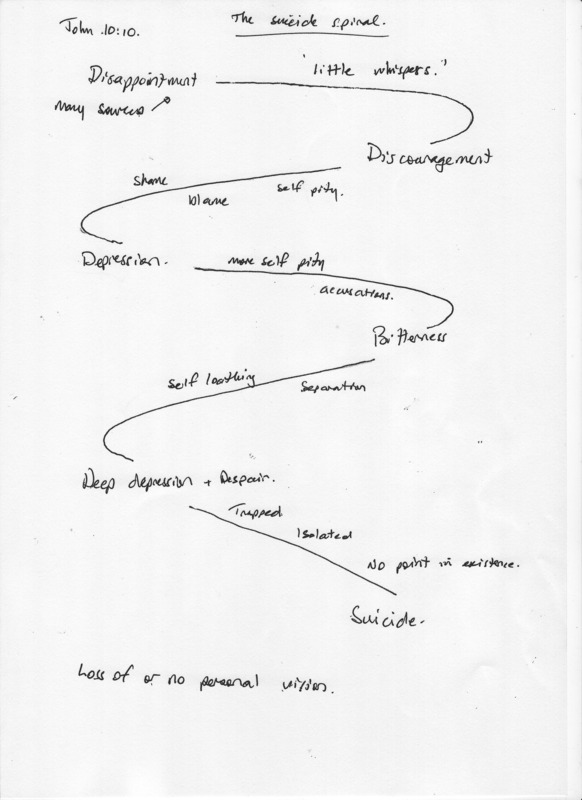 John 10:10.
The suicide spiral.
Disappointment
"little whispers."
many sources
Discouragement
shame
blame
self pity.
Depression.
more self pity
accusations.
Bitterness
self loathing
Separation
Deep depression + Despair.
Trapped
Isolated
No point in existence.
Suicide.
Loss of or no personal vision.